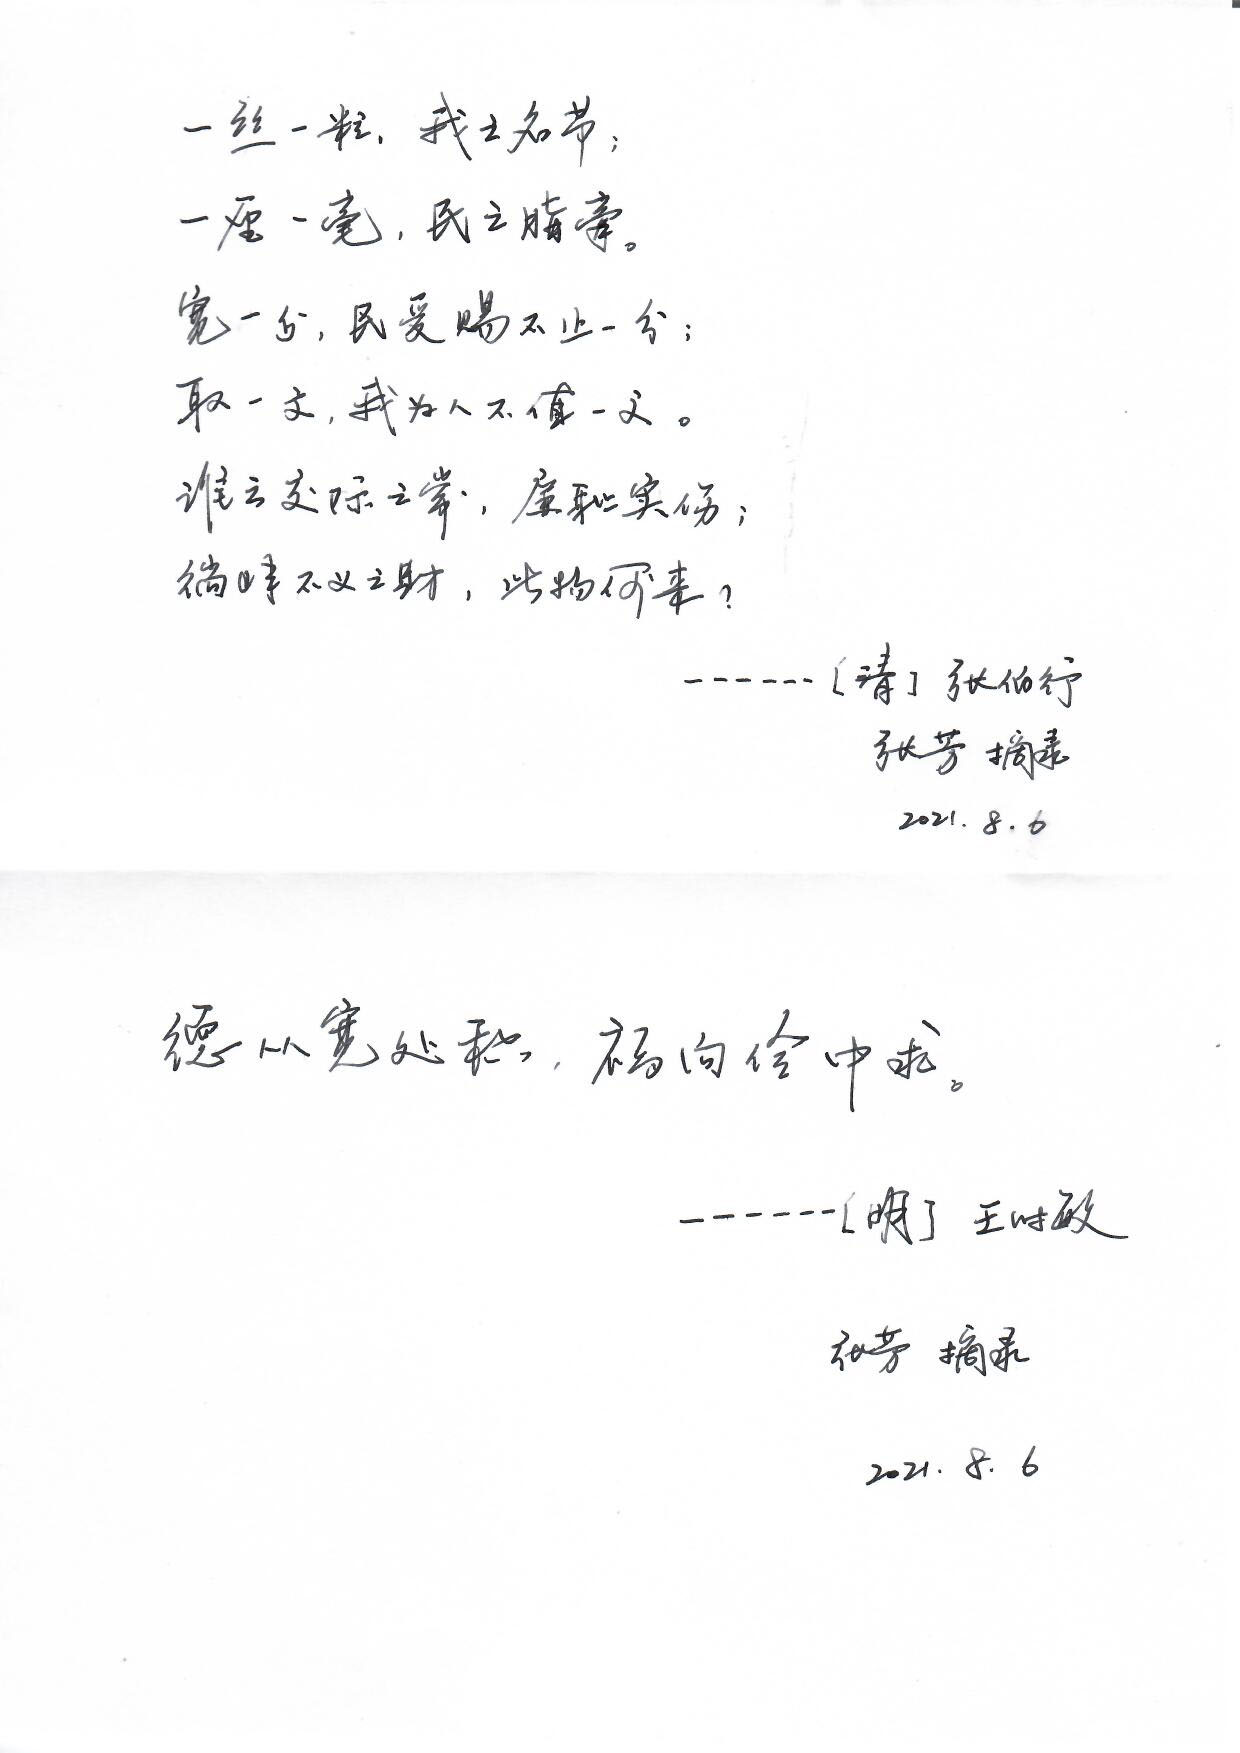 一丝一粒，我之名节；
一厘一毫，民之脂膏。
宽一分，民受赐不止一分；
取一文，我为人不值一文。
谁云交际之常，廉耻实伤；
倘非不义之财，此物何来？
------［清］张伯行
张芳 摘录
2021.8.6
德从宽处积，福向俭中求。
------［明］王时敏
张芳 摘录
2021.8.6